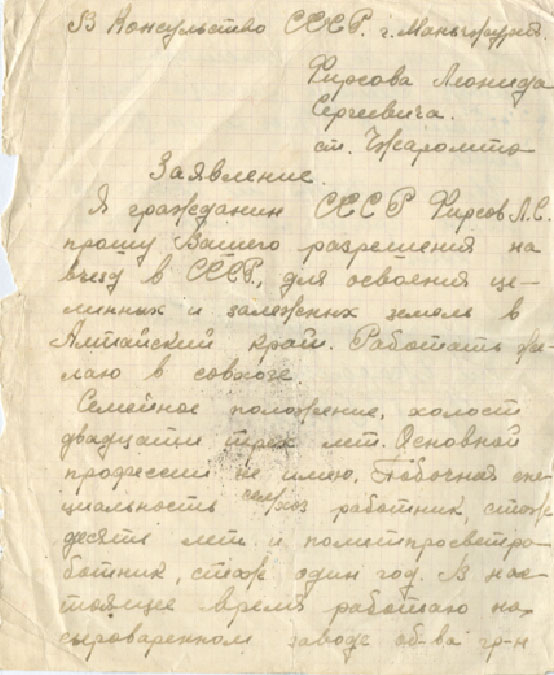 В Консульство СССР. г. Маньчжурия.
Фирсова Леонида
Сергеевича.
ст. Чжаромтэ
Заявление.
Я гражданин СССР Фирсов Л.С.
прошу Вашего разрешения на
въезд в СССР., для освоения це-
линных и залежных земель в
Алтайский край. Работать же-
лаю в совхозе
Семейное положение, холост
двадцати трех лет. Основной
профессии не имею. Побочная спе-
циальность сельхоз работник, стаж
десять лет и политпросветра-
ботник, стаж один год. В нас-
тоящее время работаю на
сыроваренном заводе об-ва гр-н